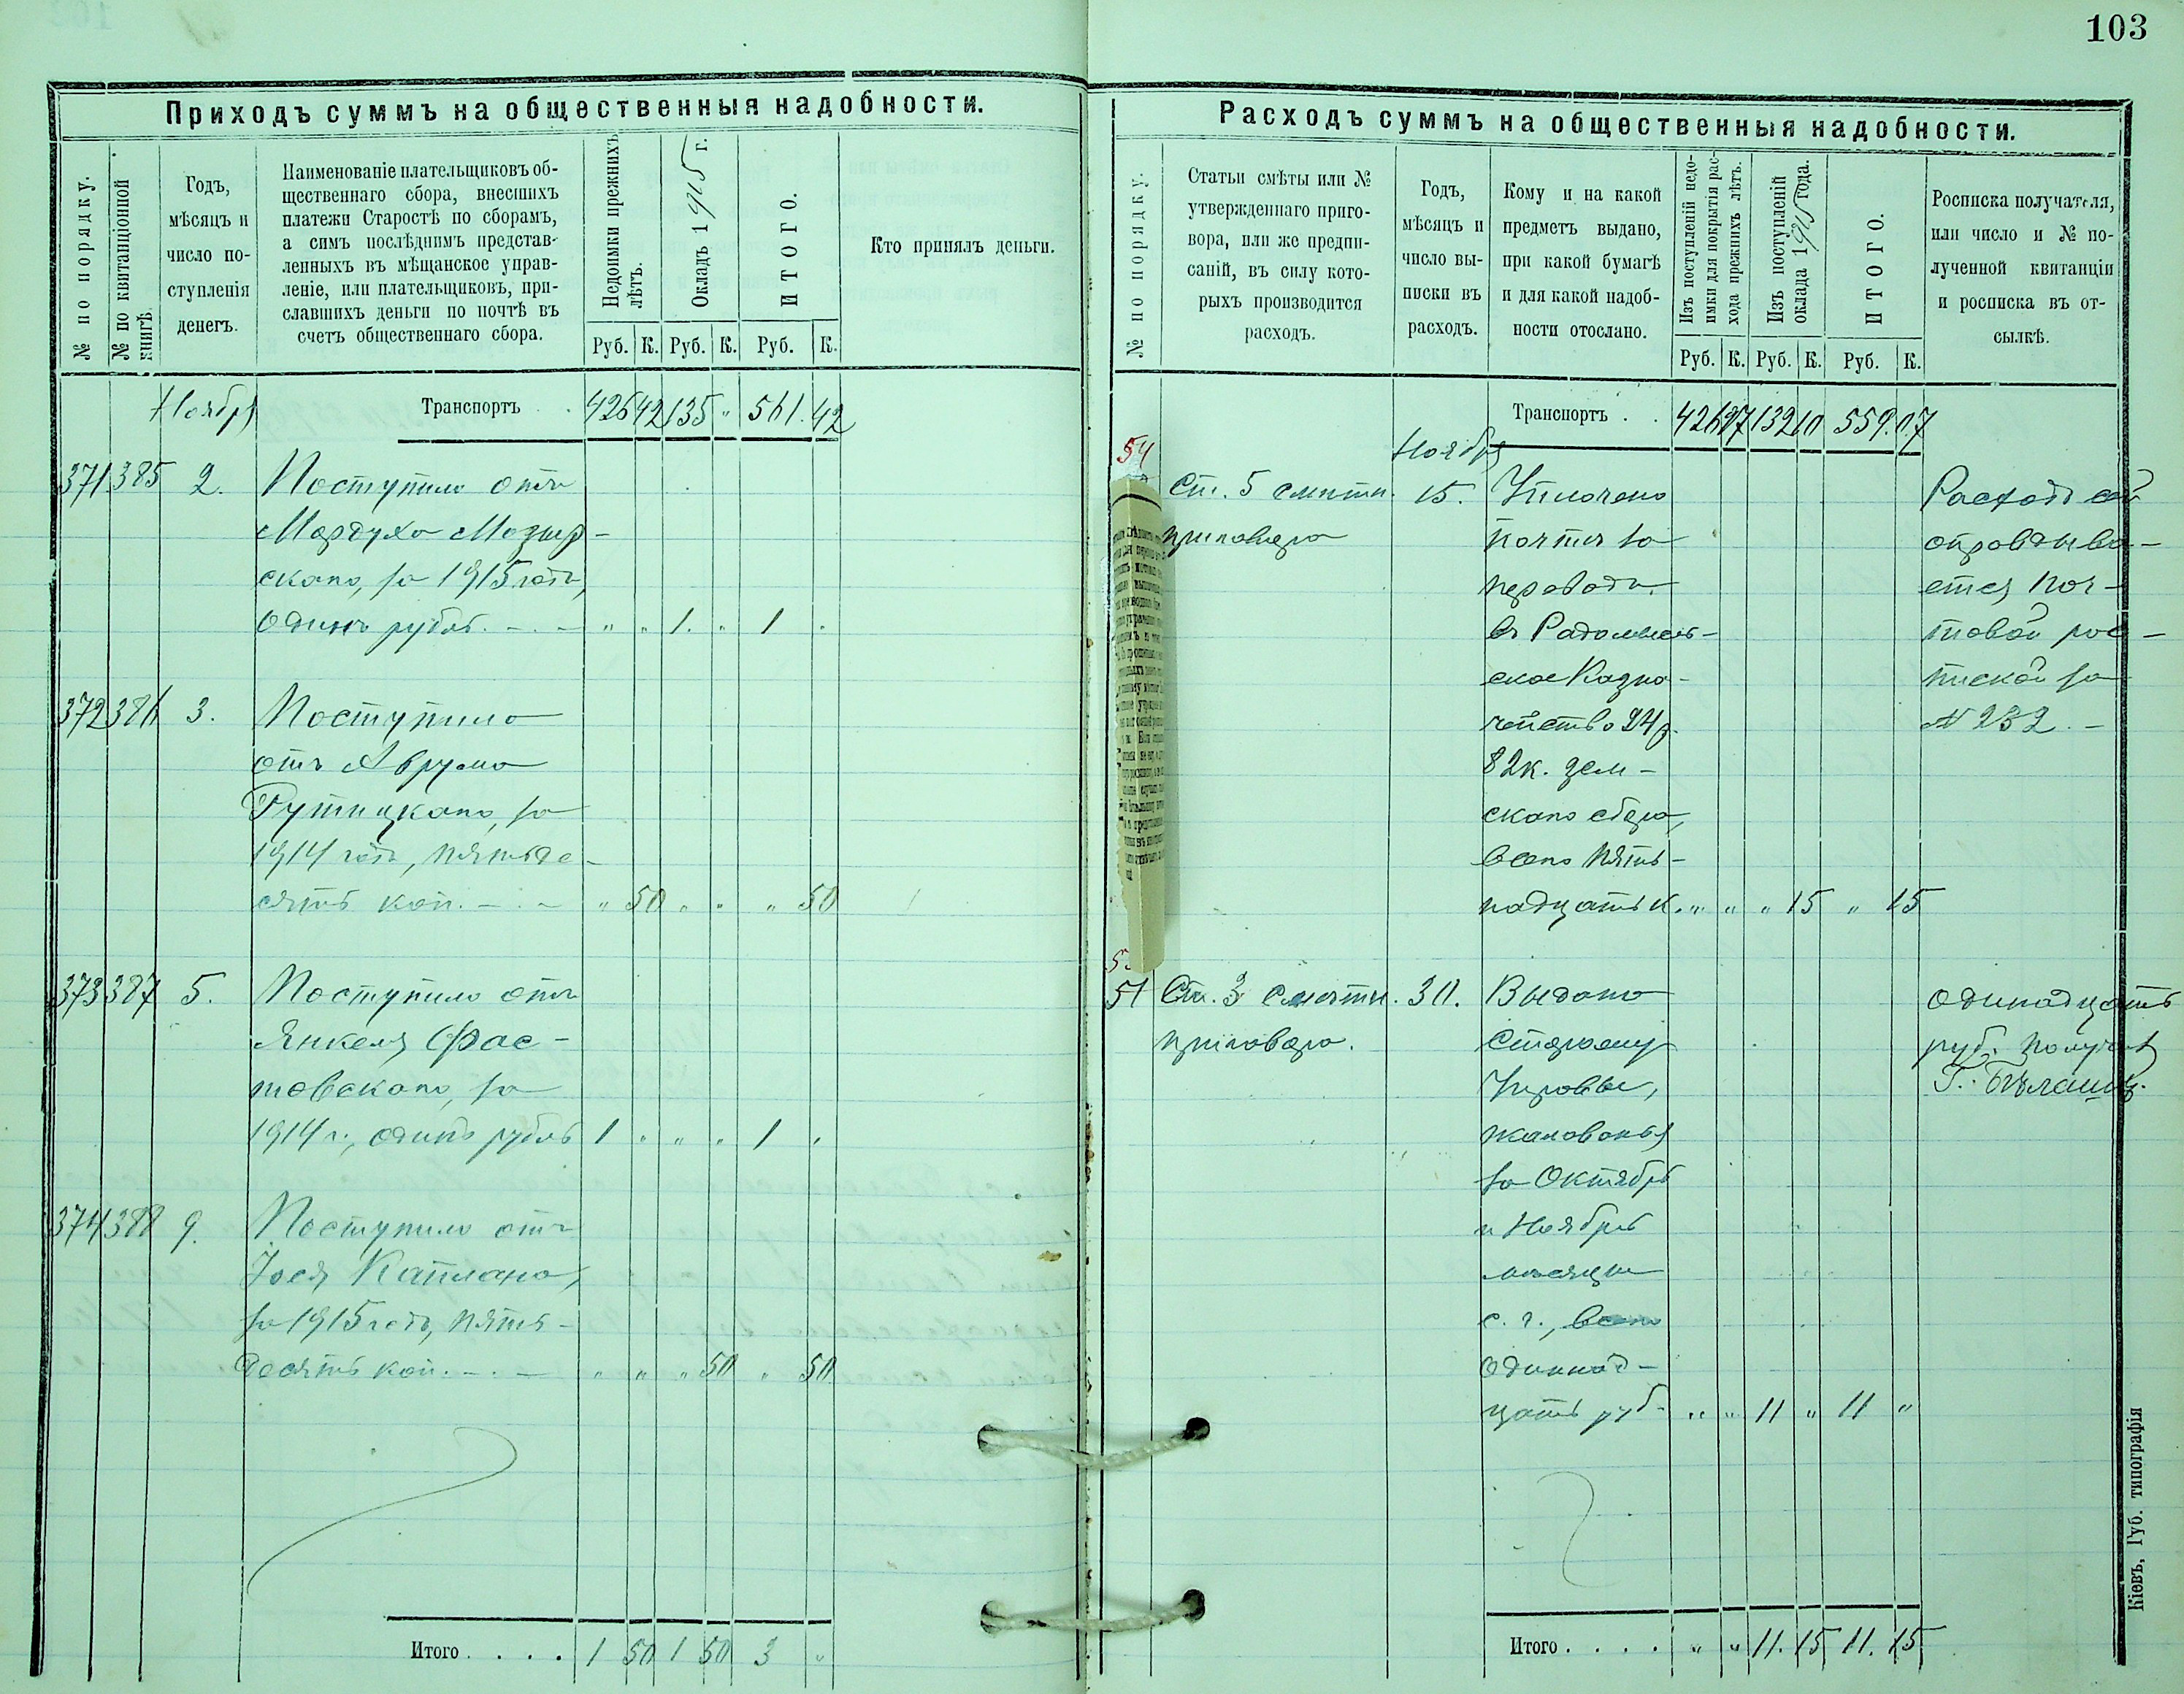 103
Приходъ суммъ на общественныя надобности.
№ по порядку.
№ по квитанціонной
книгѣ.
Годъ,
мѣсяцъ и
число по-
ступленія
денегъ.
Наименованіе плательщиковъ об-
щественнаго сбора, внесшихъ
платежи Старостѣ по сборамъ,
а симъ послѣднимъ представ-
ленныхъ въ мѣщанское управ-
леніе, или плательщиковъ, при-
славшихъ деньги по почтѣ въ
счетъ общественнаго сбора.
Недоимки прежнихъ
лѣтъ.
Окладъ 1915 г.
ИТОГО.
Кто принялъ деньги.
Руб. К. Руб. К. Руб. К.
Ноября Транспортъ . . 426 42 135 " 561. 42
371 385 2. Поступило отъ
Мордуха Мозыр-
скаго, за 1915 годъ,
одинъ рубль. - . - " " 1. " 1 .
372 386 3. Поступило
отъ Аврума
Рутицкаго, за
1914 годъ, пятьде-
сятъ коп. - . - " 50 " " " 50
373 387 5. Поступило отъ
Янкеля Фас-
товскаго, за
1914 г., одинъ рубль 1 " " " 1 .
374 388 9. Поступило отъ
Іося Каплана,
за 1915 годъ, пять-
десятъ коп. - . - " " " 50 " 50
Итого . . . . 1 50 1 50 3 "
Расходъ суммъ на общественныя надобности.
№ по порядку.
Статьи смѣты или №
утвержденнаго приго-
вора, или же предпи-
саній, въ силу кото-
рыхъ производится
расходъ.
Годъ,
мѣсяцъ и
число вы-
писки въ
расходъ.
Кому и на какой
предметъ выдано,
при какой бумагѣ
и для какой надоб-
ности отослано.
Изъ поступленій недо-
имки для покрытія рас-
хода прежнихъ лѣтъ.
Изъ поступленій
оклада 1915 года.
ИТОГО.
Росписка получателя,
или число и № по-
лученной квитанціи
и росписка въ от-
сылкѣ.
Руб. К. Руб. К. Руб. К.
Транспортъ . . 426 97 132 10 559. 07
54 Ноября
Ст. 5 смѣты. 15. Уплочено Расходъ сей
приговора почтѣ за оправдыва-
переводъ ется поч-
въ Радомысль- товой рос-
ское Казна- пиской за
чейство 24 р. № 232. -
82 к. зем-
скаго сбора,
всего пять-
надцать к. " " " 15 " 15
51 Ст. 3 смѣты. 30. Выдано одинадцать
приговора. Старому руб. получилъ
Управы, Г. Бѣлашъ.
жалованья
за Октябрь
и Ноябрь
мѣсяцы
с. г., всего
одиннад-
цать руб. " " 11 " 11 "
Итого . . . . " " 11. 15 11. 15
Кіевъ, Губ. типографія